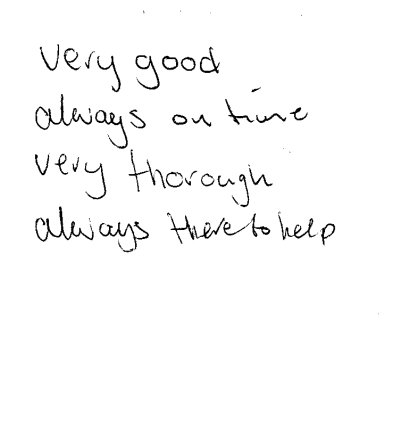 very good
always on time
very thorough
always there to help